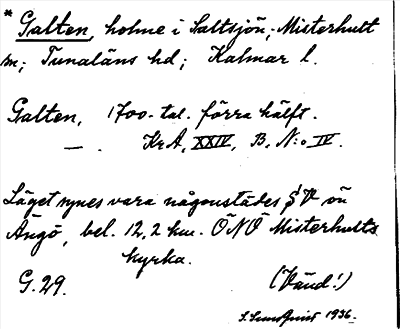 * Galten, holme i Saltsjön; Misterhult
sn; Tunaläns hd; Kalmar l.
Galten, 1700-tal. förra hälft.
— . KrA, XXIV, B, N:o IV.
Läget synes vara någonstädes SV ön
Ängö, bel. 12,2 km. ÖNÖ Misterhults
kyrka.
G. 29. (Vänd!)
1936.